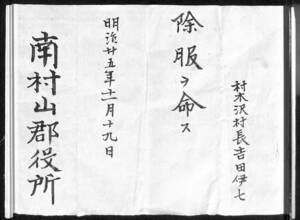 村木沢村長吉田伊七
除服ヲ命ス
明治廿五年十一月十九日
南村山郡役所